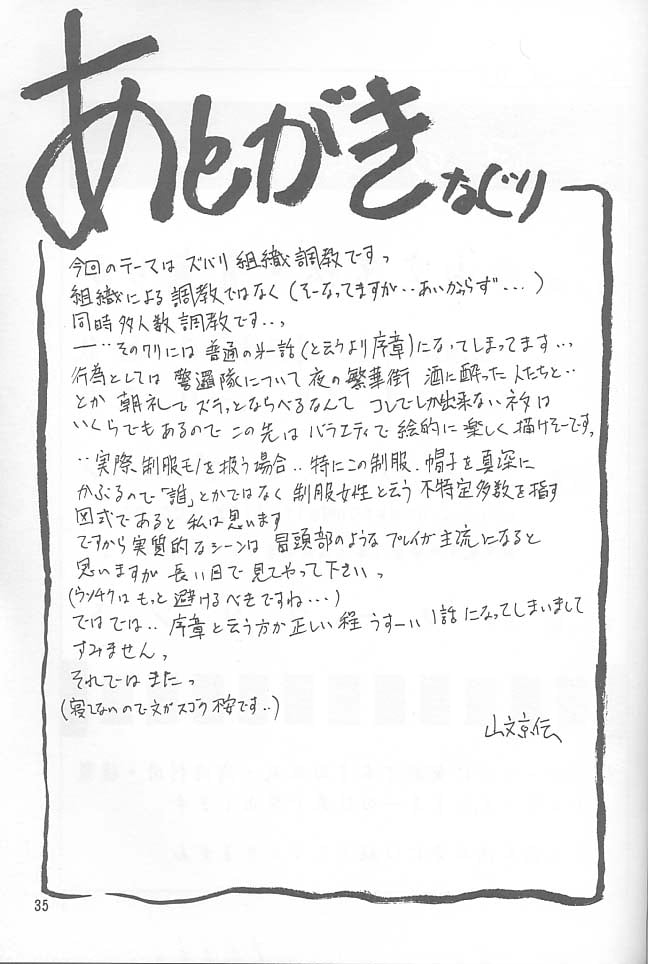 あとがき なぐり
今回のテーマは ズバリ 組織調教ですっ
組織による 調教ではなく (そーなってますが‥あいかわらず‥‥)
同時多人数調教です‥っ
ー‥そのワリには 普通の第一話(と云うより序章)になってしまってます‥っ
行為としては 警邏隊について 夜の繁華街 酒に酔った人たちと‥
とか 朝礼で ズラっとならべるなんて コレでしか出来ないネタは
いくらでもあるので この先は バラエティで 絵的に楽しく描けそーですっ
‥実際、制服モノを扱う場合‥特にこの制服、帽子を真深に
かぶるので「誰」とかではなく 制服女性と云う 不特定多数を指す
図式であると 私は思います
ですから実質的なシーンは 冒頭部のような プレイが主流になると
思いますが 長い目で見てやって下さいっ
(ウンチクは もっと 避けるべきですね‥‥)
ではでは‥ 序章と云う方が正しい程 うすーい 1話になってしまいまして
すみませんっ
それでは またっ
(寝てないので文がスゴク不安です‥)
山文京伝
35